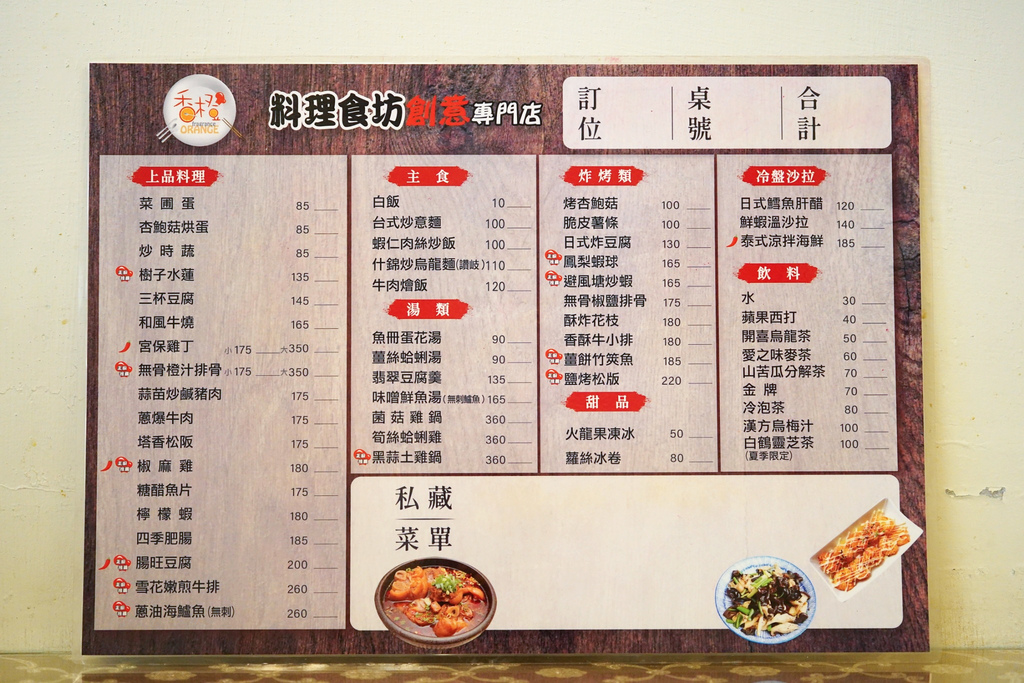 香橙
ORANGE
料理食坊創意專門店
訂位
桌號
合計
上品料理
菜圃蛋 85
杏鮑菇烘蛋 85
炒時蔬 85
樹子水蓮 135
三杯豆腐 145
和風牛燒 165
宮保雞丁 小175 大350
無骨橙汁排骨 小175 大350
蒜苗炒鹹豬肉 175
蔥爆牛肉 175
塔香松阪 175
椒麻雞 180
糖醋魚片 175
檸檬蝦 180
四季肥腸 185
腸旺豆腐 200
雪花嫩煎牛排 260
蔥油海鱸魚(無刺) 260
主食
白飯 10
台式炒意麵 100
蝦仁肉絲炒飯 100
什錦炒烏龍麵(讚岐) 110
牛肉燴飯 120
湯類
魚冊蛋花湯 90
薑絲蛤蜊湯 90
翡翠豆腐羹 135
味噌鮮魚湯(無刺鱸魚) 165
菌菇雞鍋 360
筍絲蛤蜊雞 360
黑蒜土雞鍋 360
炸烤類
烤杏鮑菇 100
脆皮薯條 100
日式炸豆腐 130
鳳梨蝦球 165
避風塘炒蝦 165
無骨椒鹽排骨 175
酥炸花枝 180
香酥牛小排 180
薑餅竹筴魚 185
鹽烤松版 220
甜品
火龍果凍冰 50
蘿絲冰卷 80
冷盤沙拉
日式鱈魚肝醋 120
鮮蝦溫沙拉 140
泰式涼拌海鮮 185
飲料
水 30
蘋果西打 40
開喜烏龍茶 50
愛之味麥茶 60
山苦瓜分解茶 70
金牌 70
冷泡茶 80
漢方烏梅汁 100
白鶴靈芝茶 100
(夏季限定)
私藏
菜單